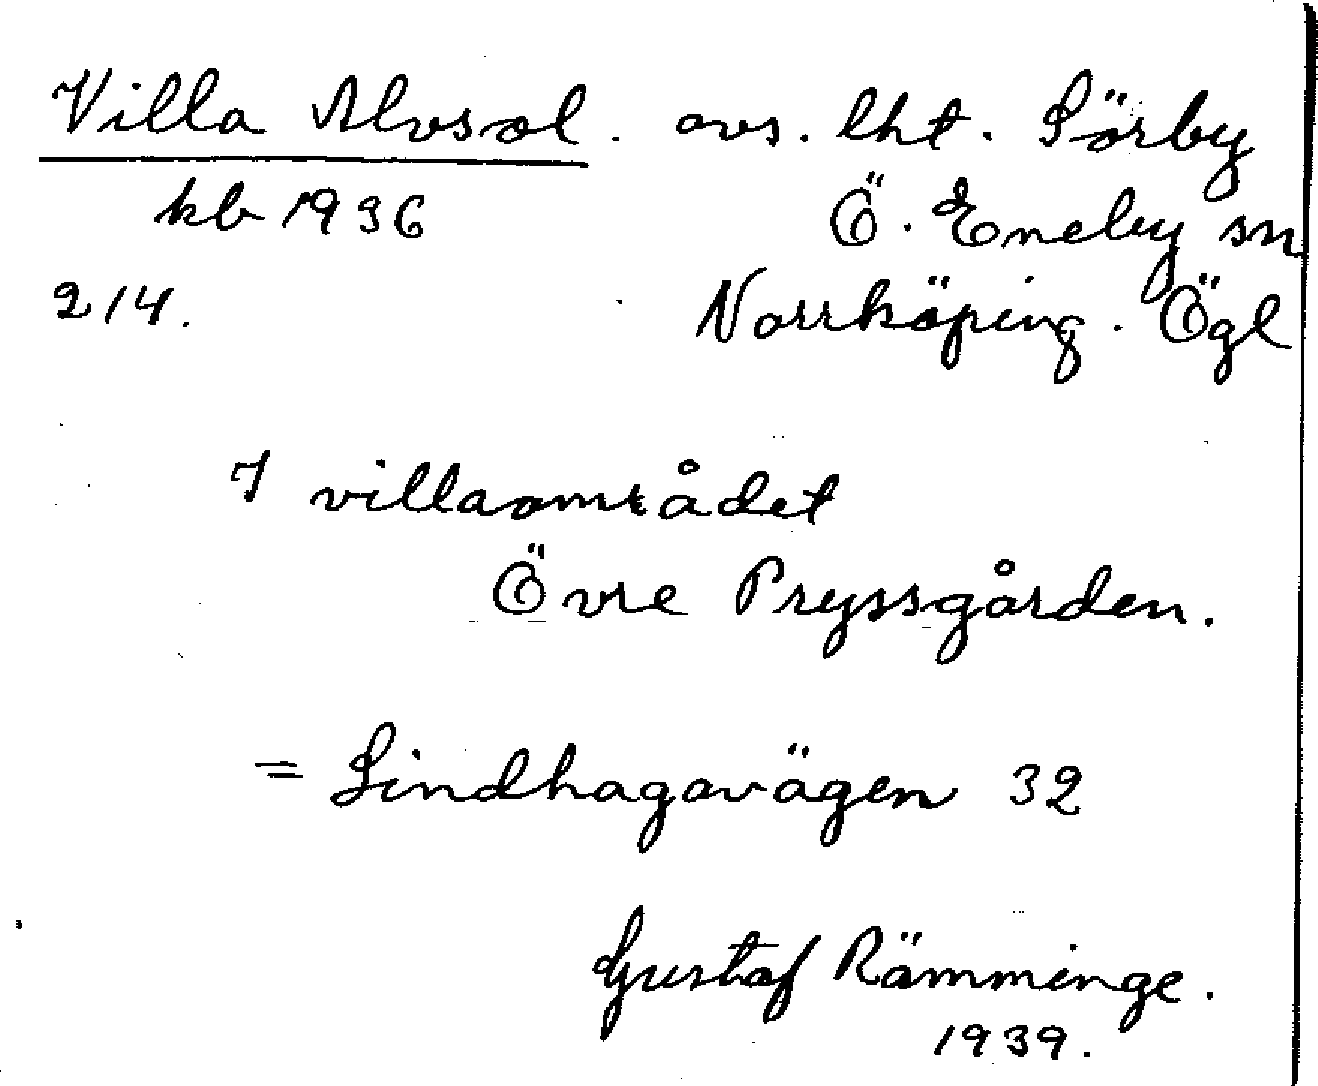 Villa Alvsol. avs. lht. Sörby
kb 1936 Ö. Eneby sn
214. Norrköping. Ögl
I villaområdet
Övre Pryssgården.
= Lindhagavägen 32
Gustaf Rämminge.
1939.